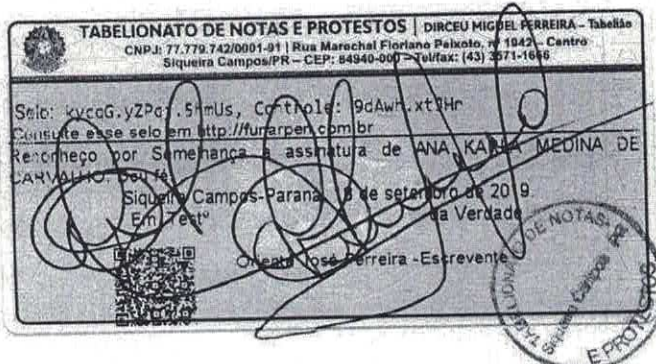 TABELIONATO DE NOTAS E PROTESTOS | DIRCEU MIGUEL FERREIRA - Tabelião
CNPJ: 77.779.742/0001-91 | Rua Marechal Floriano Peixoto, nº 1942 - Centro
Siqueira Campos/PR - CEP: 84940-000 - Tel/fax: (43) 3571-1666
Selo: Controle:
Consulte esse selo em http://funarpen.com.br
Reconheço por Semelhança a assinatura de ANA KARLA MEDINA DE
CARVALHO. Dou fé.
Siqueira Campos-Paraná, de setembro de 2019
Em Testº da Verdade
José Ferreira -Escrevente
TABELIONATO DE NOTAS
E PROTESTOS
Siqueira Campos